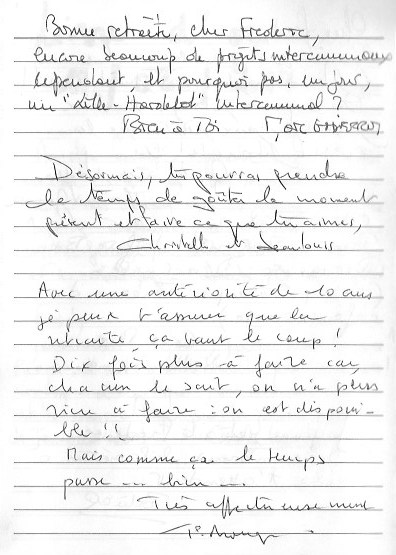 Bonne retraite, cher Frederic,
encore beaucoup de projets intercommunaux
cependant, et pourquoi pas, un jour,
un " - " intercommunal ?
Bien à Toi Marc
Désormais, tu pourras prendre
le temps de goûter le moment
présent et faire ce que tu aimes,
Christelle et Jean Louis
Avec une antériorité de 10 ans
je peux t'assurer que la
retraite ça vaut le coup !
Dix fois plus à faire car,
chacun le sait, on n'a plus
rien à faire : on est disponi-
ble !!
Mais comme ça le temps
passe ... bien ...
Très affectueusement